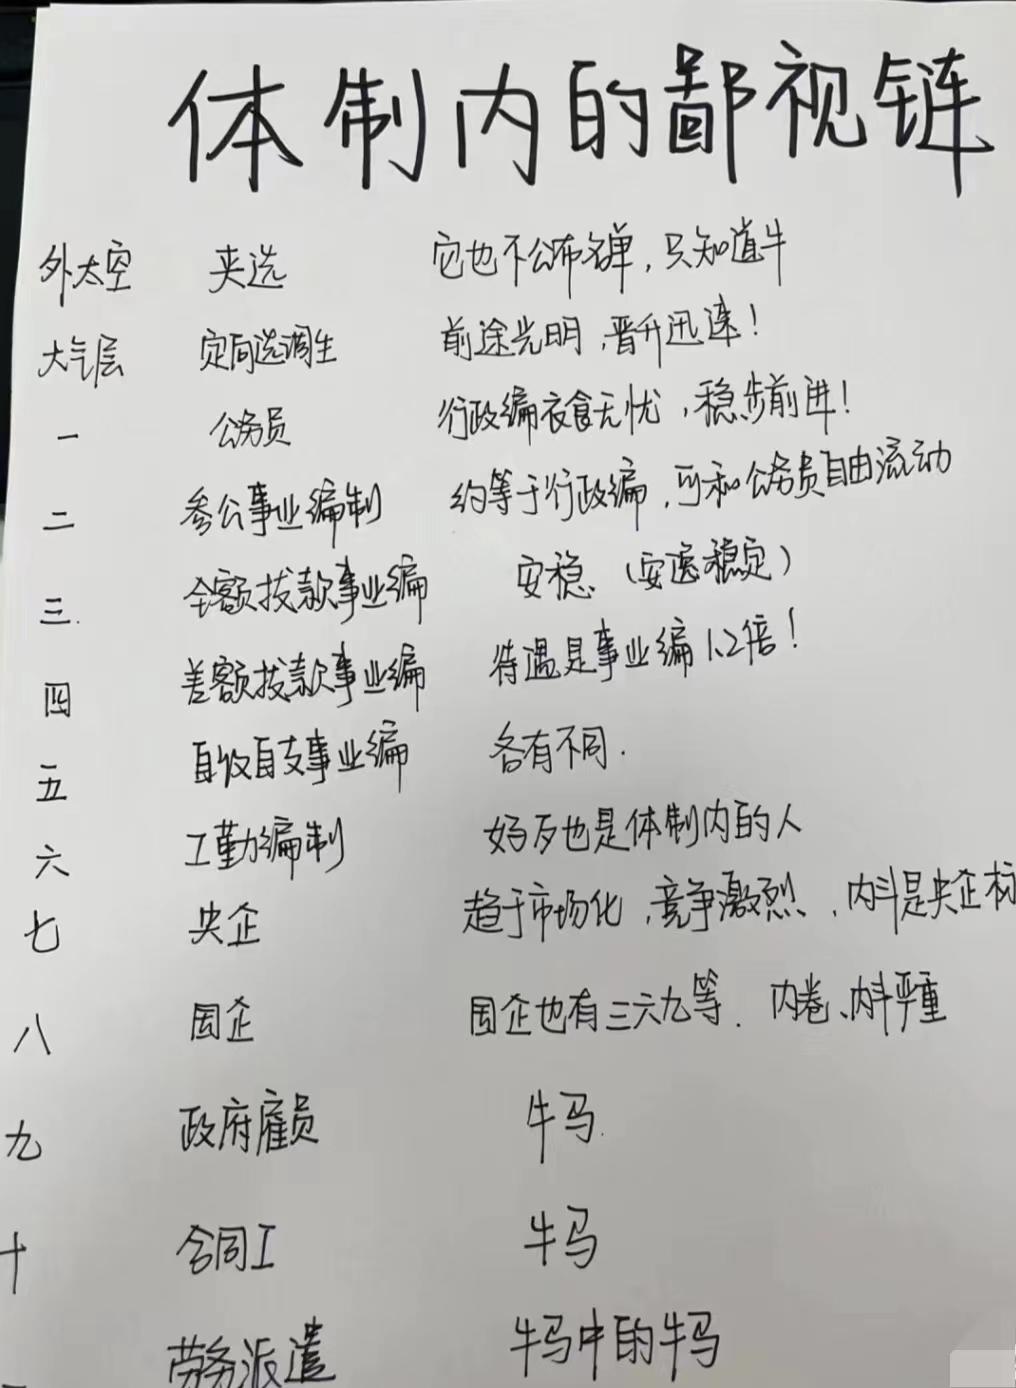 体制内的鄙视链
外太空 夹选 它也不公布名单，只知道牛
大气层 定向选调生 前途光明，晋升迅速！
一 公务员 行政编衣食无忧，稳步前进！
二 参公事业编制 约等于行政编，可和公务员自由流动
三. 全额拔款事业编 安稳（安逸稳定）
四 差额拔款事业编 待遇是事业编1.2倍！
五 自收自支事业编 各有不同.
六 工勤编制 好歹也是体制内的人
七 央企 趋于市场化，竞争激烈，内斗是央企标
八 国企 国企也有三六九等. 内卷、内斗严重
九 政府雇员 牛马.
十 合同工 牛马
劳务派遣 牛马中的牛马